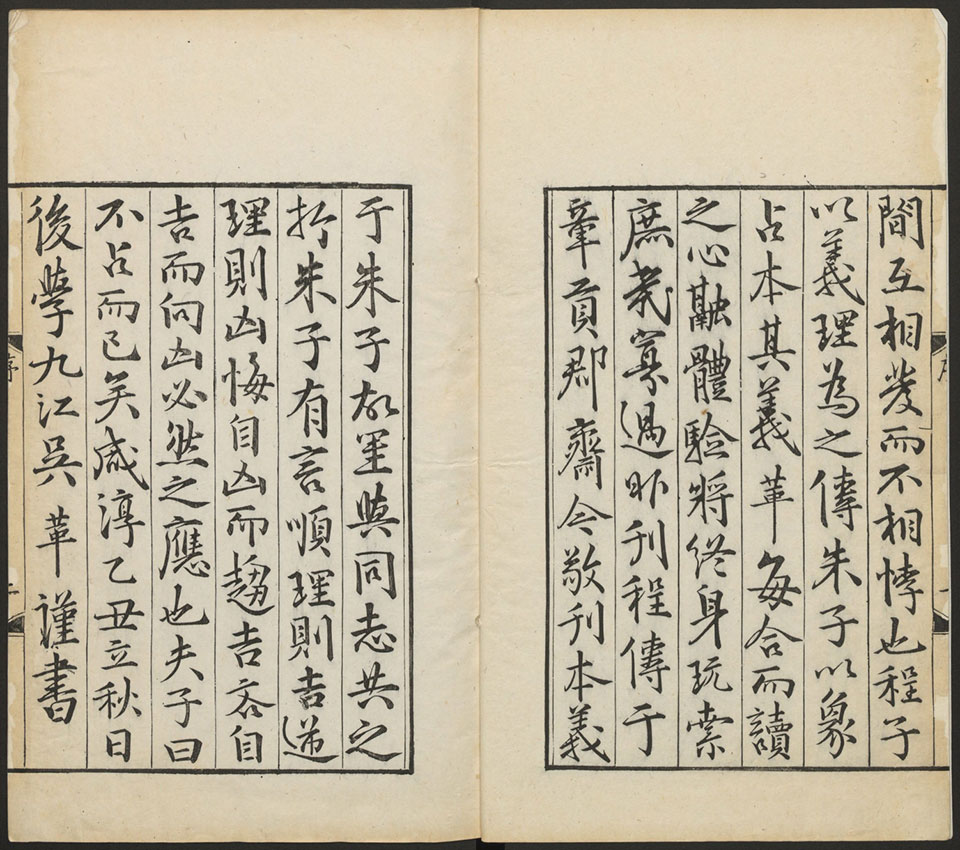 間互相發而不相悖也程子
以義理為之傳朱子以象
占本其義革每合而讀
之心融體驗將終身玩索
庶幾寡過昨刊程傳于
章貢郡齋今敬刊本義
于朱子故里與同志共之
抑朱子有言順理則吉逆
理則凶悔自凶而趨吉吝自
吉而向凶必然之應也夫子曰
不占而已矣咸淳乙丑立秋日
後學九江吳革謹書